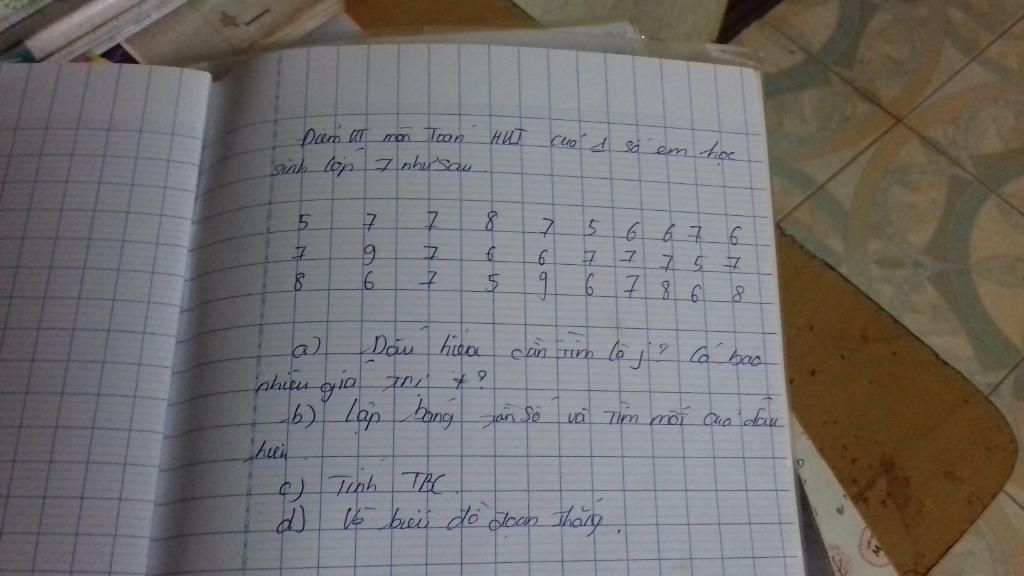 Điểm KT môn Toán HKI của 1 số em học
sinh lớp 7 như sau.
5 7 7 8 7 5 6 6 7 6
7 9 7 6 6 7 7 7 5 7
8 6 7 5 9 6 7 8 6 8
a) Dấu hiệu cần tìm là j? Có bao
nhiêu giá trị ?
b) Lập bảng tần số và tìm mốt của dấu
hiệu.
c) Tính TBC.
d) Vẽ biểu đồ đoạn thẳng.